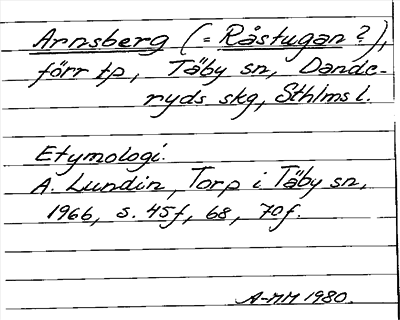 Arnsberg (= Råstugan?),
förr tp, Täby sn, Dande-
ryds skg, Sthlms l.
Etymologi.
A. Lundin, Torp i Täby sn,
1966, s. 45f, 68, 70f.
A-MM 1980.